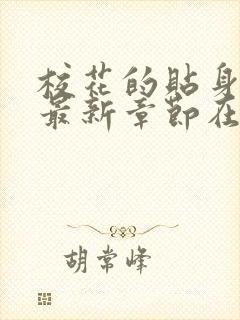 校花的貼身
最新章節在
胡常峰